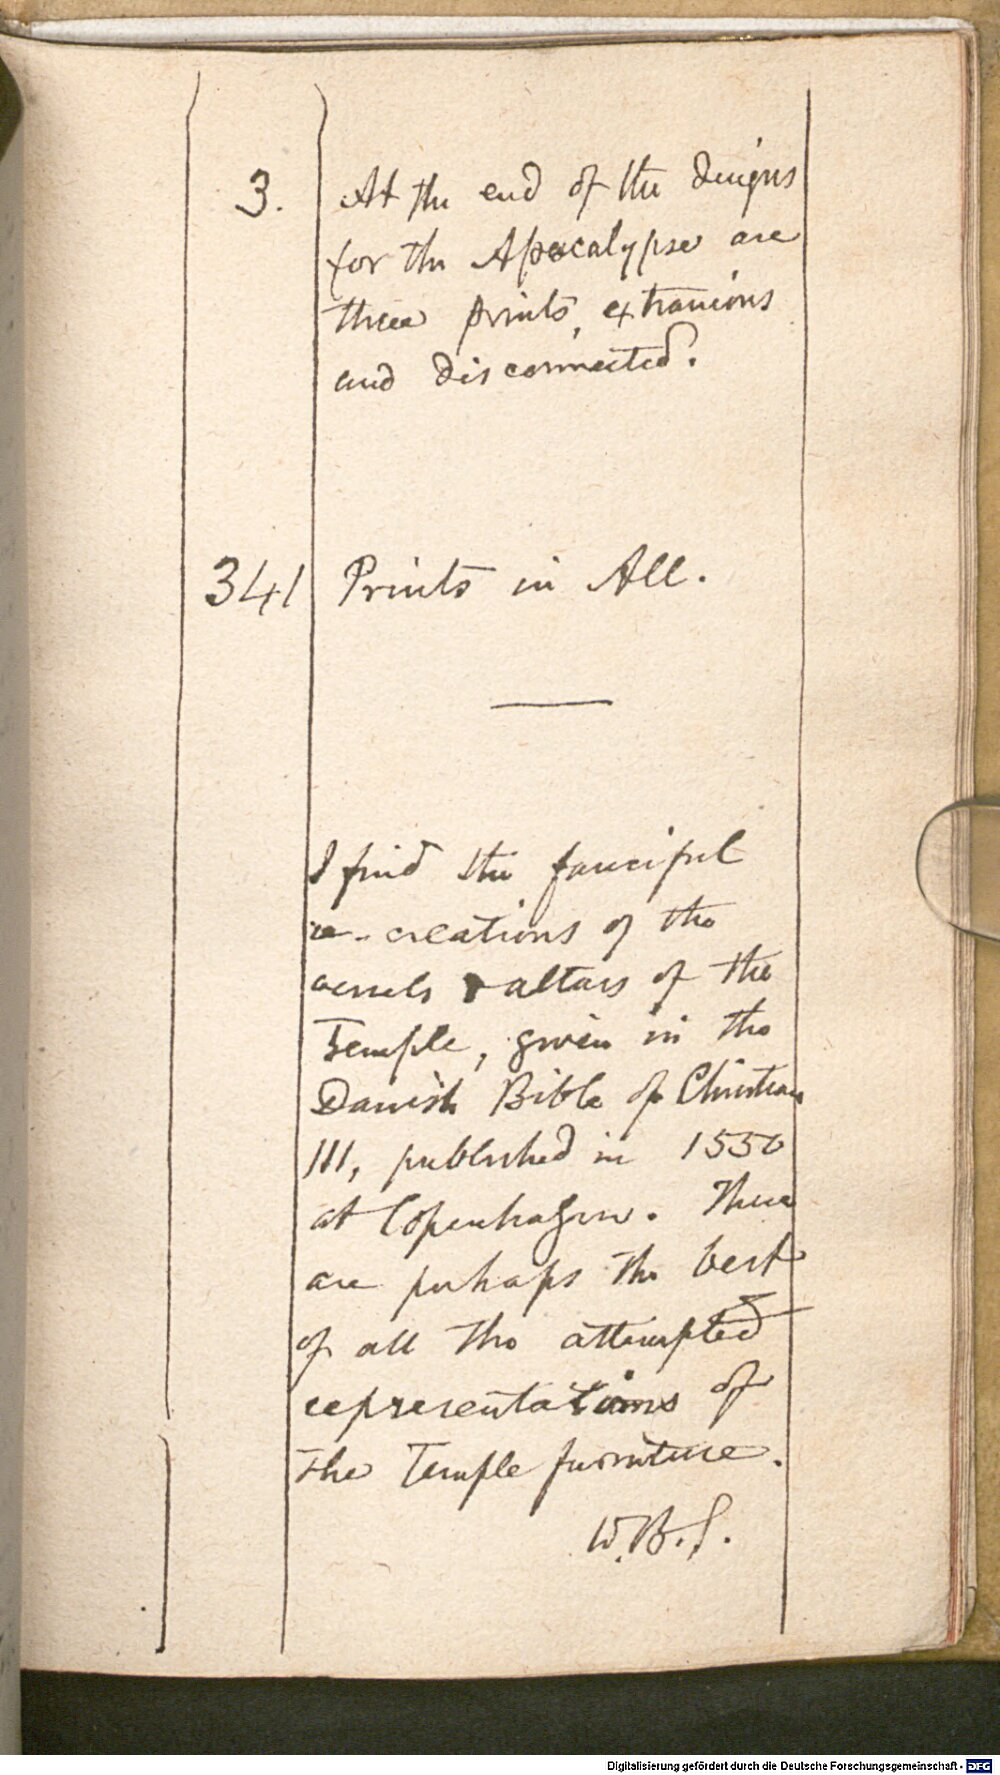 3. At the end of the designs
for the Apocalypse are
three prints, extranious
and disconnected.
341 Prints in All.
I find the fanciful
re-creations of the
vessels & altars of the
Temple, given in the
Danish Bible of Christian
III, published in 1550
at Copenhagen. These
are perhaps the best
of all the attempted
representations of
the Temple furniture.
W.B.S.
Digitalisierung gefördert durch die Deutsche Forschungsgemeinschaft - DFG